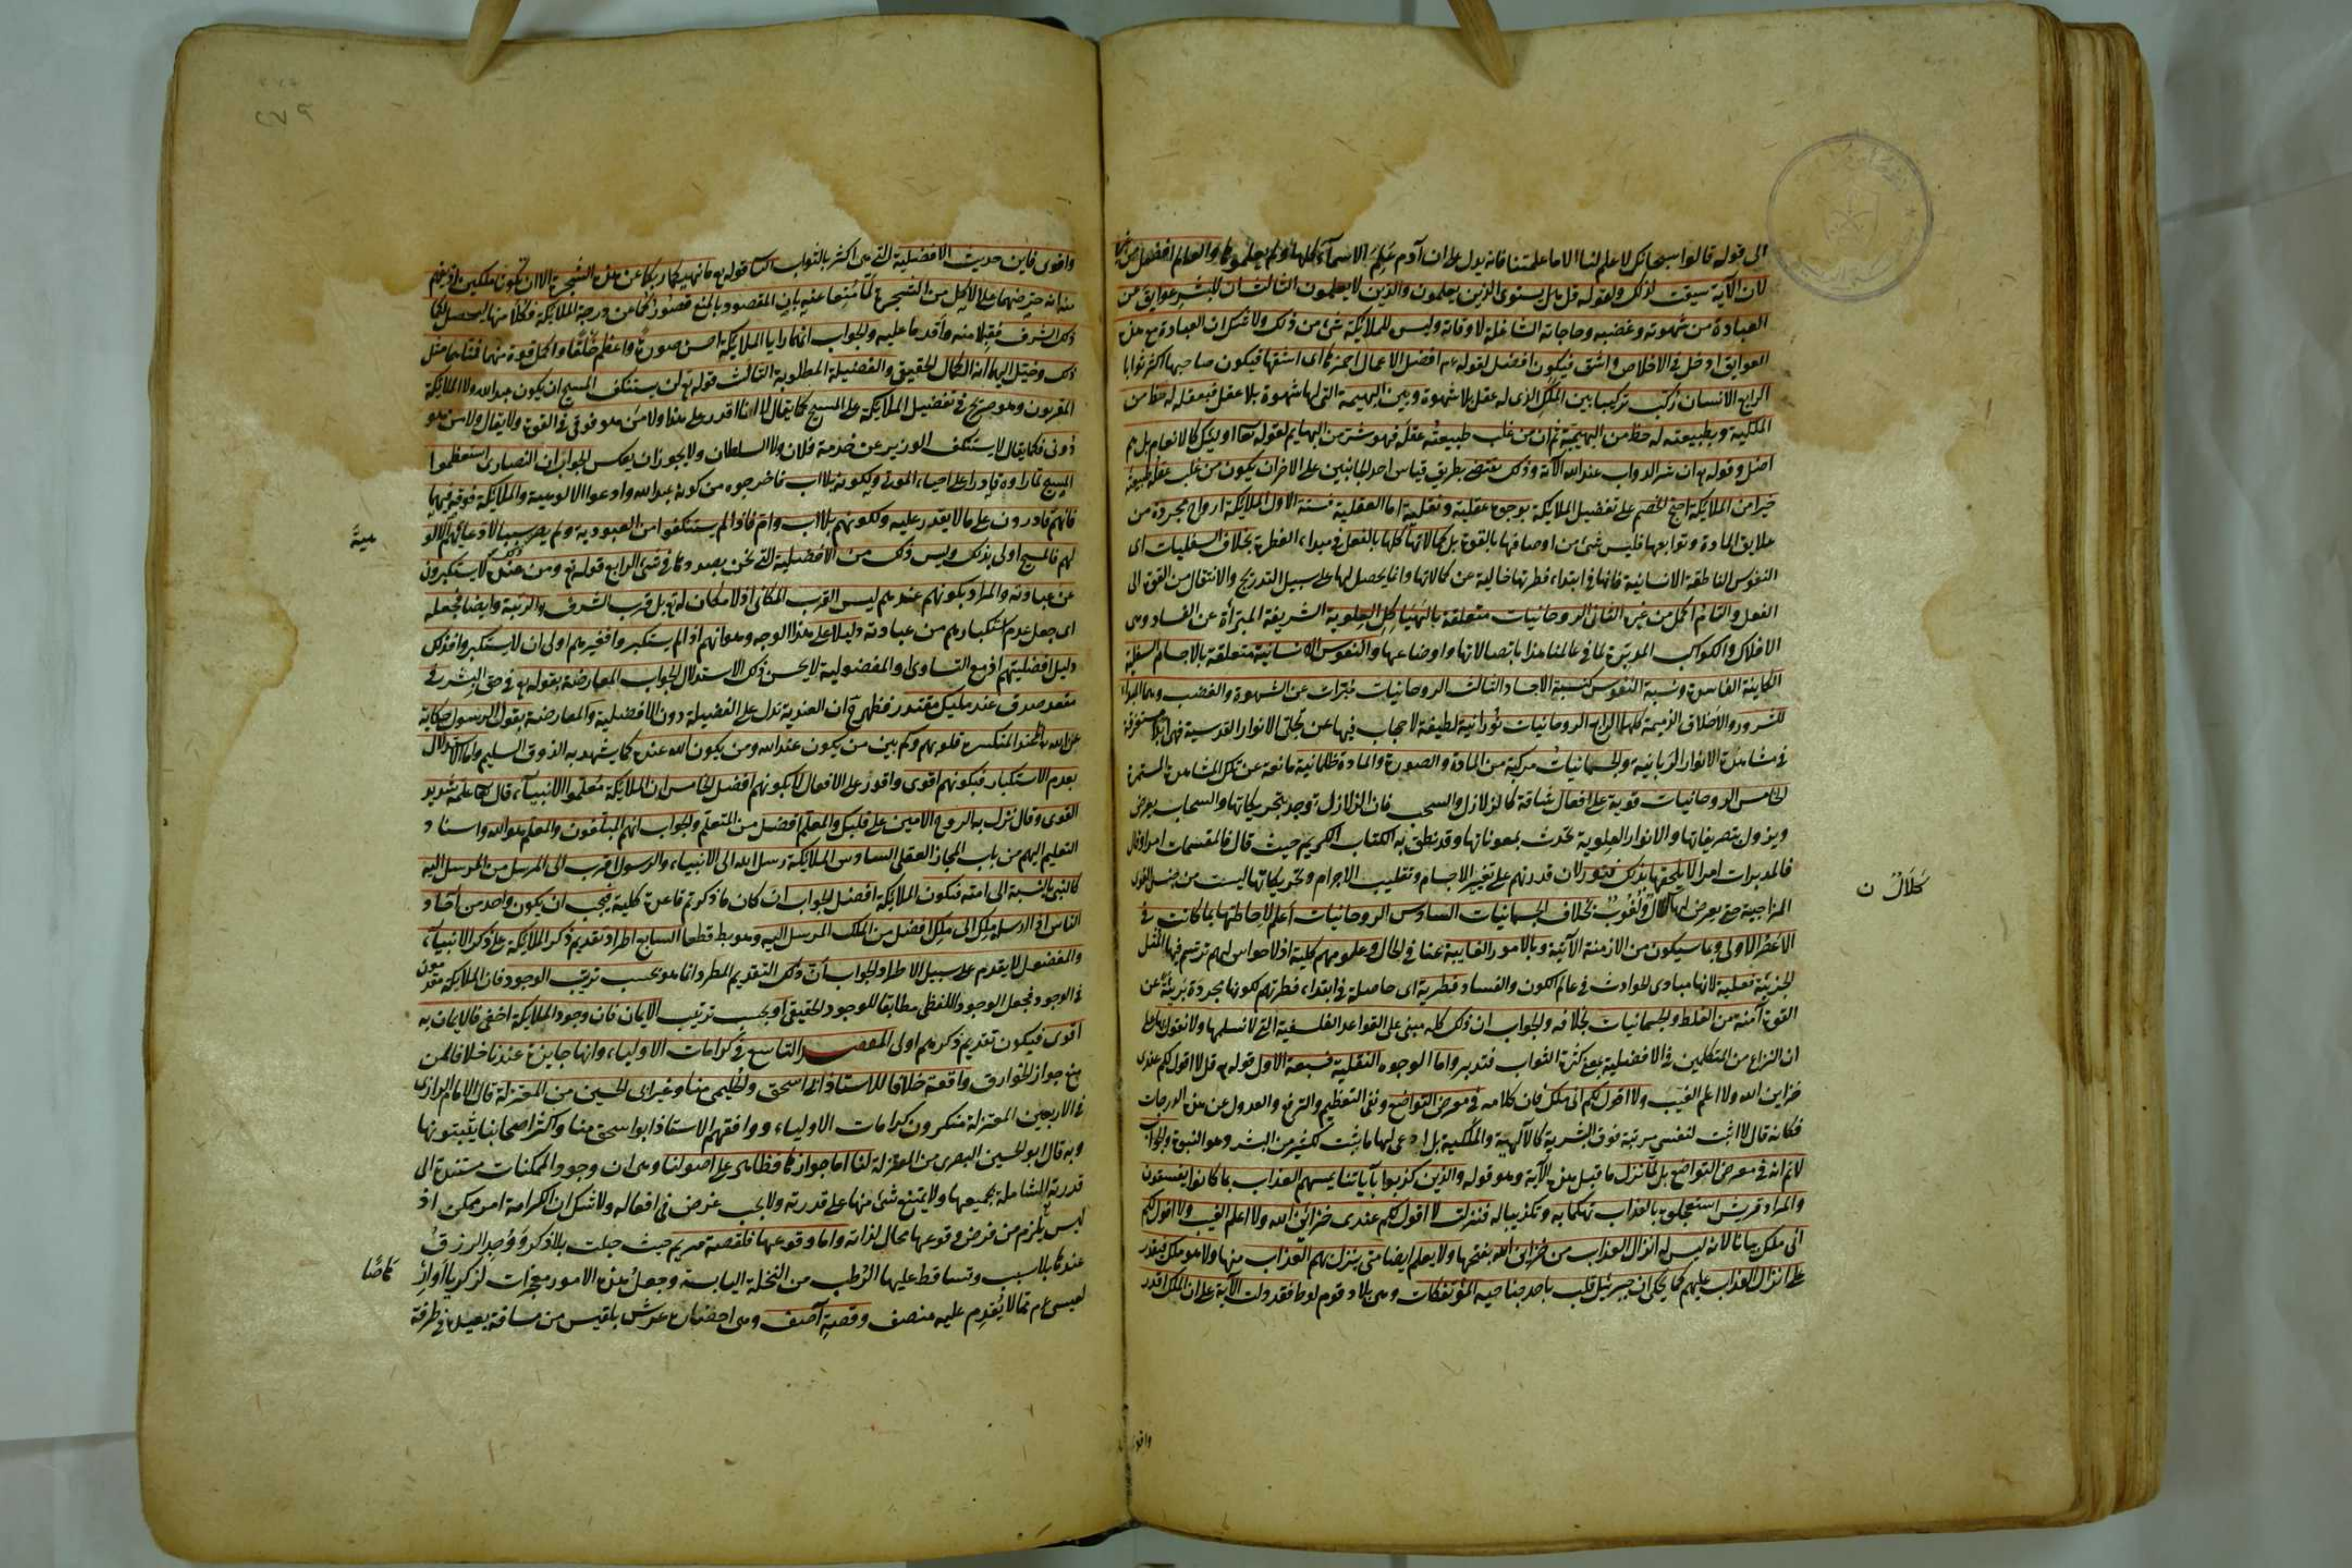 الى قوله قالوا سبحانك لا علم لنا الا ما علمتنا فانه يدل على ان آدم عُلِّمَ الاسماء كلها ولم يعلموها والعالم افضل من غيره
لان الآية سيقت لذلك ولقوله قل هل يستوى الذين يعلمون والذين لا يعلمون الثالث ان للبشر عوايق من
العبادة من شهوته وغضبه وحاجاته الشاغلة لاوقاته وليس للملايكة شئ من ذلك ولا شك ان العبادة مع هذه
العوايق ادخل فى الاخلاص واشق فيكون افضل لقوله عم افضل الاعمال احمزها اى اشقها فيكون صاحبها اكثر ثوابا
الرابع الانسان رُكِّب تركيبا بين المَلَك الذى له عقل بلا شهوة وبين البهيمة التى لها شهوة بلا عقل فبعقله له حظ من
الملكية وبطبيعته له حظ من البهيمية ثم ان من غلب طبيعتُه عقلَه فهو شر من البهايم لقوله تعا اوليك كالانعام بل هم
اضل وقوله تع ان شر الدواب عند الله الآية وذلك يقتضى بطريق قياس احد الجانبين على الاخر ان يكون من غلب عقله طبيعته
خيرا من الملايكة احتج الخصم على تفضيل الملايكة بوجوه عقلية ونقلية اما العقلية فستة الاول الملايكة ارواح مجردة من
علايق المادة وتوابعها فليس شئ من اوصافها بالقوة بل كمالاتها كلها بالفعل فى مبداء الفطرة بخلاف السفليات اى
النفوس الناطقة الانسانية فانها فى ابتداء فطرتها خالية عن كمالاتها وانما يحصل لها على سبيل التدريج والانتقال من القوة الى
الفعل والتام اكمل من غيره الثانى الروحانيات متعلقة بالهَيَاكِل العِلوية الشريفة المبرأة عن الفساد وهى
الافلاك والكواكب المدبرة لما فى عالمنا هذا باتصالاتها واوضاعها والنفوس الانسانية متعلقة بالاجسام السفلية
الكاينة الفاسدة ونسبة النفوس كنسبة الاجساد الثالث الروحانيات مُبَرّات عن الشهوة والغضب وهما المبداء
للشرور والاخلاق الذميمة كلها الرابع الروحانيات نُورانية لطيفة لا حجاب فيها عن تجلى الانوار القدسية فهى ابدا مستغرقة
فى مشاهدة الانوار الربانية والجسمانيات مركبة من المادة والصورة والمادة ظلمانية مانعة عن تلك المشاهدة المستمرة
الخامس الروحانيات قوية على افعال شاقة كالزلازل والسحب فان الزلازل توجد بتحريكاتها والسحاب يعرض
ويزول بتصريفاتها والانوار العلوية تحدث بمعوناتها وقد نطق به الكتاب الكريم حيث قال فالمقسمات امرا وقال
فالمدبرات امرا لا يلحقها بذلك فتور لان قدرتهم على تغيير الاجسام وتقليب الاجرام وتحريكاتها ليست من جنس القوى
المزاجية حتى يعرض لها كلال ولُغُوب بخلاف الجسمانيات السادس الروحانيات أعلم لاحاطتها بما كانت فى
كَلَالٌ ن
الاعصر الاولى وبما سيكون من الازمنة الآتية وبالامور الغايبة عنا فى الحال وعلومهم كلية اذ لا حواس لهم ترتسم فيها المُثل
الجزئية فعلية لانها مبادى للحوادث فى عالم الكون والفساد فطرية اى حاصلة فى ابتداء فطرتهم لكونها مجردة بريئة عن
القوة آمنة من الغلط والجسمانيات بخلافه والجواب ان ذلك كله مبنى على القواعد الفلسفية التى لا نسلمها ولا نقول بها على
ان النزاع من المتكلمين فى الافضلية بمعنى كثرة الثواب فتدبر واما الوجوه النقلية فسبعة الاول قوله تع قل لا اقول لكم عندى
خزاين الله ولا اعلم الغيب ولا اقول لكم انى ملك فان كلامه فى معرض التواضع ونفى التعظيم والترفع والعدول عن هذه الدرجات
فكانه قال لا اثبت لنفسى مرتبة فوق البشرية كالآلهية والملكية بل ادعى لها ما يثبت لكثير من البشر وهو النبوة والجواب
لانم انه فى معرض التواضع بل لما نزل ما قبل هذه الآية وهو قوله والذين كذبوا بآياتنا يمسهم العذاب بما كانوا يفسقون
والمراد قريش استعجلوه بالعذاب تهكما به وتكذيبا له فنزلت لا اقول لكم عندى خزائن الله ولا اعلم الغيب ولا اقول لكم
انى ملك بيانا لانه ليس له انزال العذاب من خزاين الله بفتحها ولا يعلم ايضا متى ينزل بهم العذاب منها ولا هو ملك فيقدر
على انزال العذاب عليهم كما يحكى ان جبرئيل قلب باحد جناحيه المؤتفكات وهى بلاد قوم لوط فقد دلت الآية على ان الملك اقدر
٢٧٩
واقوى فاين حديث الافضلية التى هى اكثرية الثواب الثانى قوله تع ما نهيكما ربكما عن هذه الشجرة الا ان تكونا ملكين اذ يفهم
منه انه حرضهما على الاكل من الشجرة لما مُنِعا عنه بان المقصود بالمنع قصوركما عن درجة الملايكة فكُلا منها ليحصل لكما
ذلك الشرف فقبلا منه واقدما عليه والجواب انهما رايا الملايكة احسن صورة واعظم خَلْقًا واكمل قوة منهما فمناهما مثل
ذلك وخيّل اليهما انه الكمال الحقيقى والفضيلة المطلوبة الثالث قوله تع لن يستنكف المسيح ان يكون عبدا لله ولا الملايكة
المقربون وهو صريح فى تفضيل الملايكة على المسيح كما يقال لا انا اقدر على هذا ولا من هو فوقى فى القوة ولا يقال ولا من هو
دُونى وكما يقال لا يستنكف الوزير عن خدمة فلان ولا السلطان ولا يجوز ان يعكس الجواب ان النصارى استعظموا
المسيح لما راوه قادرا على احياء الموتى ولكونه بلا اب فاخرجوه من كونه عبدا لله وادعوا له الالوهية والملايكة فوقه فيهما
فانهم قادرون على ما لا يقدر عليه ولكونهم بلا اب وام فاذا لم يستنكفوا من العبودية ولم يصر سببا لادعيائهم الالو
هيةَ
لهم فالمسيح اولى بذلك وليس ذلك من الافضلية التى نحن بصددها فى شئ الرابع قوله تع ومن عنده لا يستكبرون
عن عبادته والمراد بكونهم عنده ليس القرب المكانى اذ لا مكان له تع بل قرب الشرف والرتبة وايضا فجعله
اى جعل عدم استكبارهم من عبادته دليلا على هذا الوجه وهو انهم اذا لم يستكبروا فغيرهم اولى ان لا يستكبروا فذلك
دليل افضليتهم اذ مع التساوى او المفضولية لا يحسن ذلك الاستدلال الجواب المعارضة بقوله تع فى حق البشر فى
مقعد صدق عند مليك مقتدر فظهر ح ان العندية تدل على الفضيلة دون الافضلية والمعارضة بقول الرسول حكاية
عن الله انا عند المنكسرة قلوبهم وكم بين من يكون عند الله ومن يكون الله عنده كما يشهد به الذوق السليم واما الاستدلال
بعدم الاستكبار فبكونهم اقوى واقدر على الافعال لا بكونهم افضل الخامس ان الملايكة مُعلّموا الانبياء قال تعا علمه شديد
القوى وقال نزل به الروح الامين على قلبك والمعلم افضل من المتعلم والجواب انهم المبلغون والمعلم هو الله واسناد
التعليم اليهم من باب المجاز العقلى السادس الملايكة رسل الله الى الانبياء والرسول اقرب الى المرسل من المرسل اليه
كالنبى بالنسبة الى امته فتكون الملايكة افضل الجواب ان كان ما ذكرتم قاعدة كلية فيجب ان يكون واحد من آحاد
الناس اذا ارسله ملك الى ملك افضل من الملك المرسل اليه وهو بط قطعا السابع اطراد تقديم ذكر الملايكة على ذكر الانبياء
والمفضول لا يقدم على سبيل الاطراد الجواب ان ذلك التقديم المطرد انما هو بحسب ترتيب الوجود فان الملايكة مقدمون
فى الوجود فجعل الوجود اللفظى مطابقا للوجود الحقيقى او بحسب ترتيب الايمان فان وجود الملايكة اخفى فالايمان به
اقوى فيكون تقديم ذكرهم اولى المقصد التاسع فى كرامات الاولياء وانها جايزة عندنا خلافا لمن
منع جواز الخوارق واقعة خلافا للاستاذ ابى اسحق والحليمى منا وغير ابى الحسين من المعتزلة قال الامام الرازى
فى الاربعين المعتزلة منكرون كرامات الاولياء ووافقهم الاستاذ ابو اسحق منا واكثر اصحابنا يثبتونها
وبه قال ابو الحسين البصرى من المعتزلة لنا اما جوازها فظاهر على اصولنا وهى ان وجود الممكنات مستندة الى
قدرته الشاملة بجميعها ولا يمتنع شئ منها على قدرته ولا يجب غرض فى افعاله ولا شك ان الكرامة امر ممكن اذ
ليس يلزم من فرض وقوعها محال لذاته واما وقوعها فلقصة مريم حيث حبلت بلا ذكر وَوُجد الرزق
عندها بلا سبب وتساقط عليها الرُطب من النخلة اليابسة وجعلُ هذه الامور معجزات لزكريا او ارْ
هاصًا
لعيسى عم مما لا يُقدِم عليه منصف وقصة آصف وهى احضاره عرش بلقيس من مسافة بعيدة فى طرفة